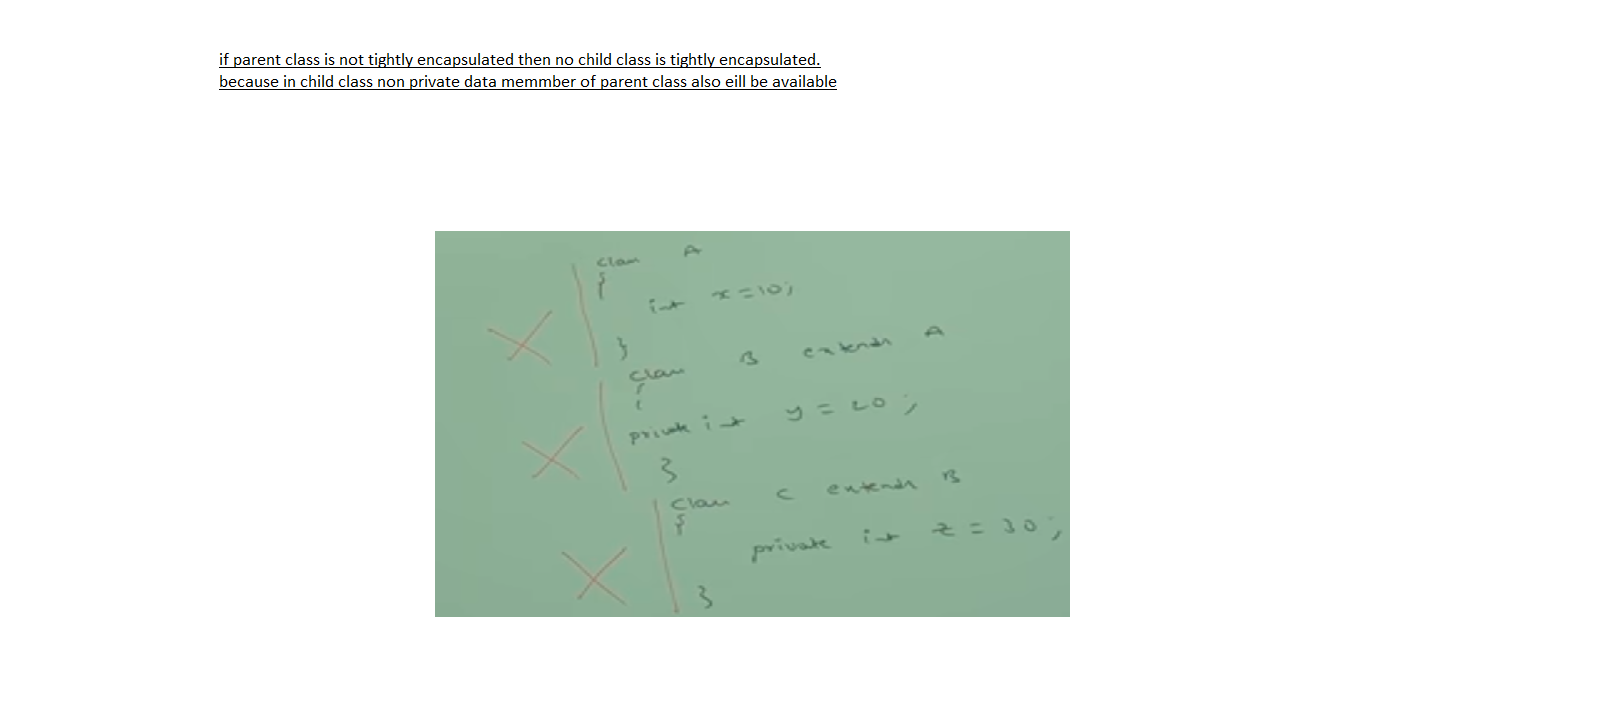 if parent class is not tightly encapsulated then no child class is tightly encapsulated.
because in child class non private data memmber of parent class also eill be available
class A
{
int x = 10;
}
class B extends A
{
private int y = 20;
}
class C extends B
{
private int z = 30;
}